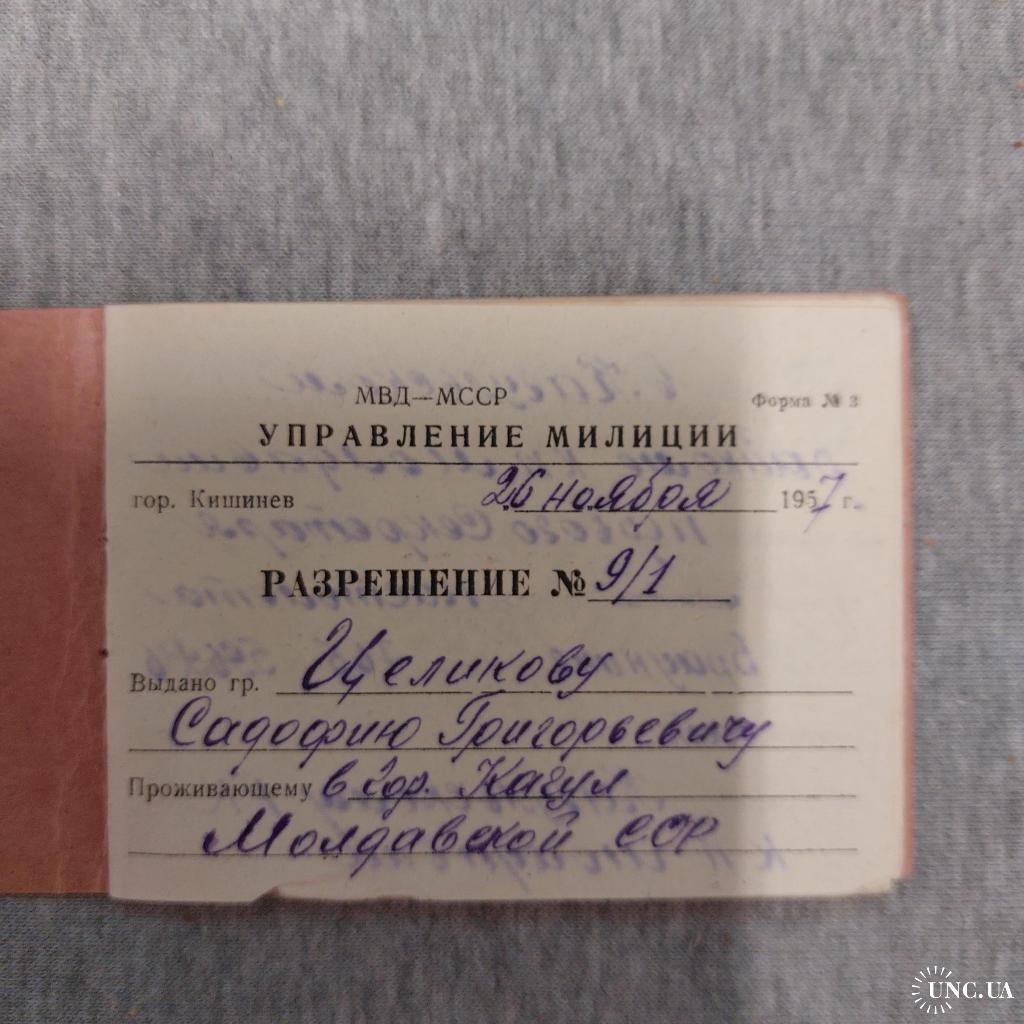 МВД—МССР
Форма № 3
УПРАВЛЕНИЕ МИЛИЦИИ
гор. Кишинев 26 ноября 1957 г.
РАЗРЕШЕНИЕ № 9/1
Выдано гр. Целикову
Садофию Григорьевичу
Проживающему в гор. Кагул
Молдавской ССР
UNC.UA